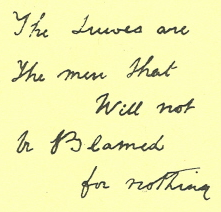 The Juwes are
The men That
Will not
be Blamed
for nothing